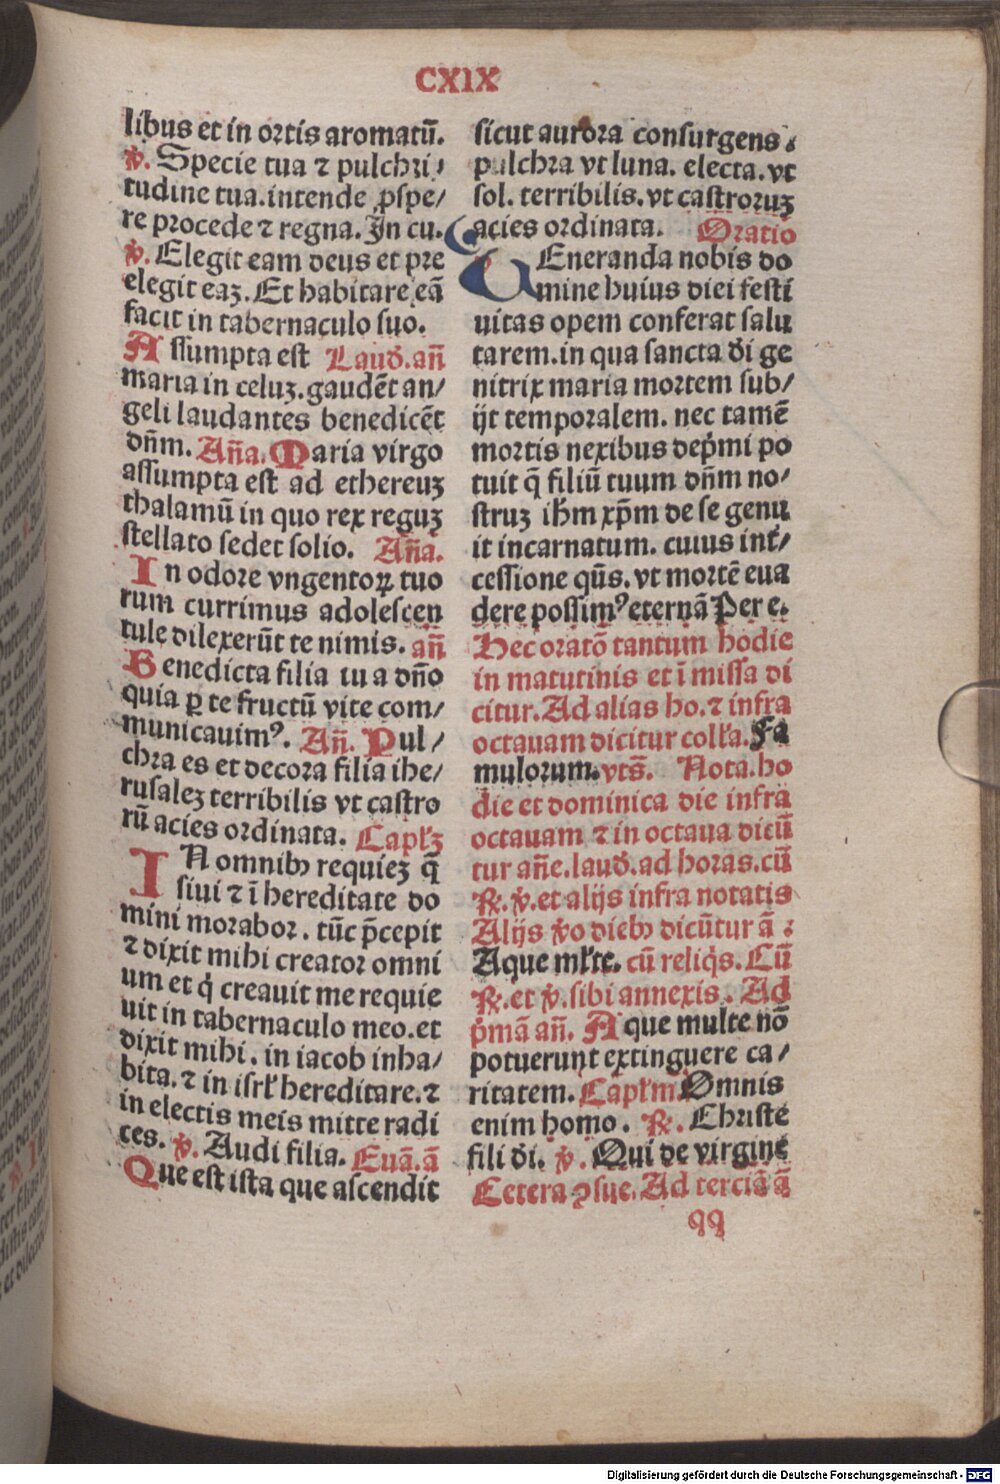 CXIX
libus et in ortis aromatū.
v̓. Specie tua ⁊ pulchri/
tudine tua.intende ꝓspe/
re procede ⁊ regna. In cu.
v̓. Elegit eam deus et pre
elegit eaȝ. Et habitare eā
facit in tabernaculo suo.
Assumpta est Laud̓.an̄
maria in celuȝ.gaudēt an/
geli laudantes benedicēt
dn̄m. An̄a. Maria virgo
assumpta est ad ethereuȝ
thalamū in quo rex reguȝ
stellato sedet solio. An̄a.
In odore vngentoꝝ tuo
rum currimus adolescen
tule dilexerūt te nimis. an̄
Benedicta filia tu a dn̄o
quia ꝑ te fructū vite com/
municauimꝰ. An̄. Pul/
chra es et decora filia ihe/
rusaleȝ terribilis vt castro
rū acies ordinata. Capl̓ȝ
IN omnibꝫ requieȝ q̄
siui ⁊ ī hereditate do
mini morabor. tūc p̄cepit
⁊ dixit mihi creator omni
um et q̓ creauit me requie
uit in tabernaculo meo.et
dixit mihi. in iacob inha/
bita.⁊ in isrl̓ hereditare.⁊
in electis meis mitte radi
ces. v̓. Audi filia. Euā.ā
Que est ista que ascendit
sicut aurora consurgens.
pulchra vt luna. electa.vt
sol. terribilis.vt castroruȝ
acies ordinata. Oratio
VEneranda nobis do
mine huius diei festi
uitas opem conferat salu
tarem.in qua sancta di̓ ge
nitrix maria mortem sub/
ijt temporalem. nec tamē
mortis nexibus dep̓mi po
tuit q̄ filiū tuum dn̄m no/
struȝ ihm̄ xp̄m de se genu
it incarnatum. cuius int̓/
cessione qūs. vt mortē eua
dere possimꝰ eternā Per e.
Hec oratō tantum hodie
in matutinis et ī missa di
citur. Ad alias ho. ⁊ infra
octauam dicitur coll̓a. Fa
mulorum. vts̄. Nota. ho
die et dominica die infra
octauam ⁊ in octaua dicū
tur an̄e.laud̓.ad horas.cū
℟. v̓.et alijs infra notatis
Alijs v̓o diebꝫ dicūtur ā :
Aque ml̓te. cū reliq̓s. Cū
℟.et v̓.sibi annexis. Ad
p̓mā an̄. Aque multe nō
potuerunt extinguere ca/
ritatem. Capl̓m Omnis
enim homo. ℟. Christe
fili di̓. v̓. Qui de virgine
Cetera ꝯsue. Ad terciā ā
qq
Digitalisierung gefördert durch die Deutsche Forschungsgemeinschaft - DFG